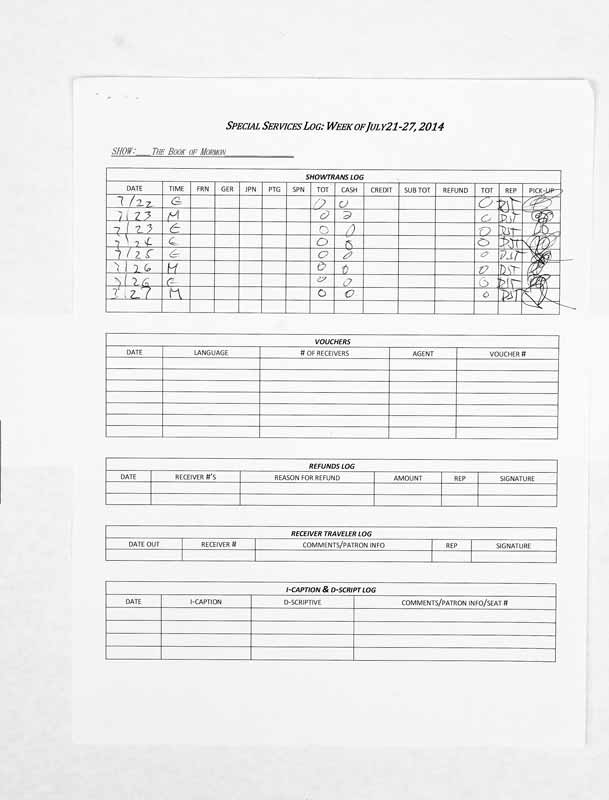 SPECIAL SERVICES LOG: WEEK OF JULY21-27, 2014
SHOW: THE BOOK OF MORMON
SHOWTRANS LOG
DATE TIME FRN GER JPN PTG SPN TOT CASH CREDIT SUB TOT REFUND TOT REP PICK-UP
7/22 E 0 0 0 DST
7/23 M 0 0 0 DST
7/23 E 0 0 0 DST
7/24 E 0 0 0 DST
7/25 E 0 0 0 DST
7/26 M 0 0 0 DST
7/26 E 0 0 0 DST
7/27 M 0 0 0 DST
VOUCHERS
DATE LANGUAGE # OF RECEIVERS AGENT VOUCHER #
REFUNDS LOG
DATE RECEIVER #'S REASON FOR REFUND AMOUNT REP SIGNATURE
RECEIVER TRAVELER LOG
DATE OUT RECEIVER # COMMENTS/PATRON INFO REP SIGNATURE
I-CAPTION & D-SCRIPT LOG
DATE I-CAPTION D-SCRIPTIVE COMMENTS/PATRON INFO/SEAT #